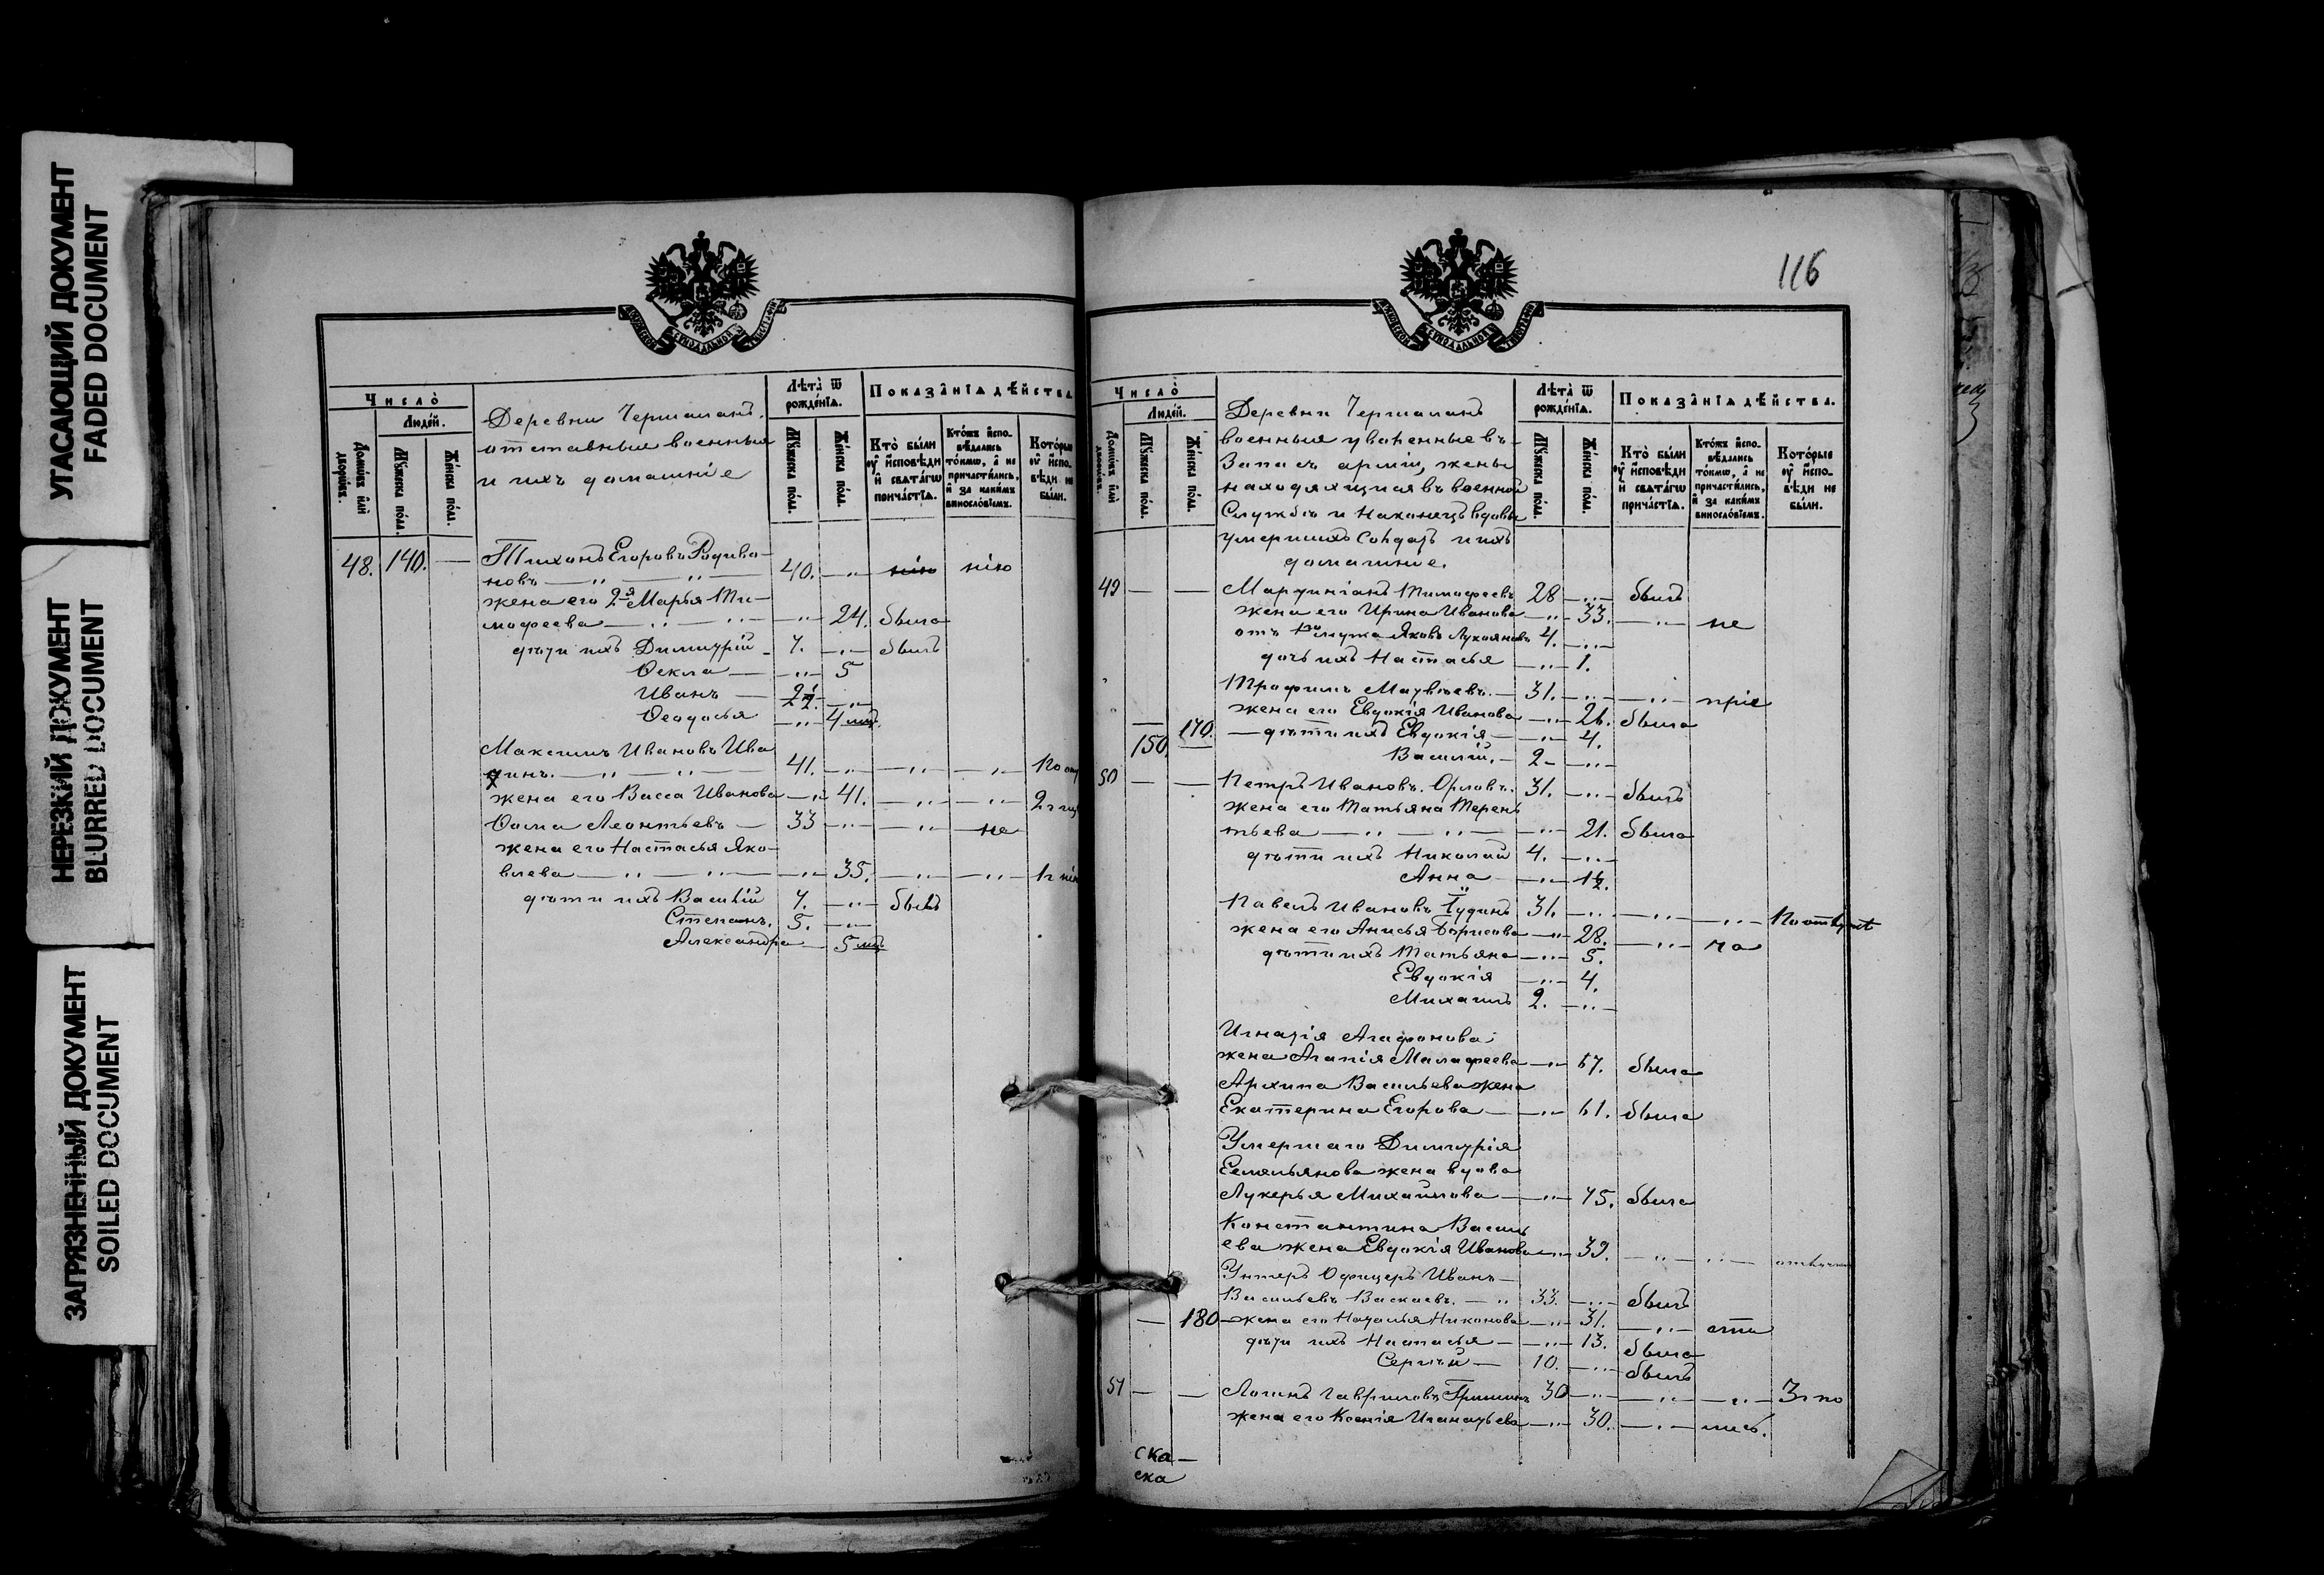 УГАСАЮЩИЙ ДОКУМЕНТ
FADED DOCUMENT
НЕРЕЗКИЙ ДОКУМЕНТ
BLURRED DOCUMENT
ЗАГРЯЗНЕННЫЙ ДОКУМЕНТ
SOILED DOCUMENT
Число̀
Людéй.
Домѡ́въ и҆лѝ дворѡ́въ.
Мꙋ́жеска по́лꙋ.
Же́нска по́лꙋ.
Деревни
отставные военные
и ихъ домашніе
Лѣта̀ ѿ рожде́нїѧ.
Мꙋ́жеска по́лꙋ.
Же́нска по́лꙋ.
Показа̑нїѧ дѣ́йства.
Кто̀ бы́ли ᲂу҆ и҆сповѣди и҆ свѧта́гѡ прича́стїѧ.
Кто́жъ и҆спо-вѣдались то́кмѡ, а҆ не причасти́лись, и҆ за каки́мъ виносло́вїемъ.
Кото́рые ᲂу҆ и҆спо-вѣди не бы́ли.
48. 140. — Тихонъ Егоровъ Родиво-
новъ — 40. —
жена его 2я Марья Ти-
моѳеева — 24. была
дѣти ихъ Димитрій 7. — былъ
Ѳекла — 5
Иванъ — 2½.
Ѳеодосья — 4 мц.
Максимъ Ивановъ Ива
динъ. — 41. —
жена его Васса Иванова — 41. —
Ѳома Леонтьевъ — 33 — не
жена его Настасья Яко-
влева — 35. —
дѣти ихъ Василій 7. — былъ
Степанъ. 5. —
Александра — 5 мц.
116
Число̀
Людéй.
Домѡ́въ и҆лѝ дворѡ́въ.
Мꙋ́жеска по́лꙋ.
Же́нска по́лꙋ.
Деревни
военные уволенные въ
Запасъ арміи, жены
находящихся въ военной
Службѣ и Наконецъ вдовы
умершихъ Солдатъ и ихъ
домашніе.
Лѣта̀ ѿ рожде́нїѧ.
Мꙋ́жеска по́лꙋ.
Же́нска по́лꙋ.
Показа̑нїѧ дѣ́йства.
Кто̀ бы́ли ᲂу҆ и҆сповѣди и҆ свѧта́гѡ прича́стїѧ.
Кто́жъ и҆спо-вѣдались то́кмѡ, а҆ не причасти́лись, и҆ за каки́мъ виносло́вїемъ.
Кото́рые ᲂу҆ и҆спо-вѣди не бы́ли.
49 — — Тимоѳеевъ 28 — былъ
жена его Ирина Иванова — 33. — не
отъ 1го мужа Яковъ Лукояновъ 4. —
дочь ихъ Настасья — 1.
Трофимъ Матвѣевъ. — 31. —
жена его Евдокія Иванова — 26. была
170. — дѣти ихъ Евдокія — 4.
150. — Василій. — 2 —
50 — — Петръ Ивановъ Орловъ. 31. — былъ
жена его Татьяна Терен
тьева — 21. была
дѣти ихъ Николай 4. —
Анна — 1½.
Павелъ Ивановъ 31. —
жена его Анисья Борисова — 28. —
дѣти ихъ Татьяна — 5.
Евдокія — 4.
Михаилъ 2. —
Игнатія Агафонова
жена Агапія Малафеева — 67. была
Архипа Васильева жена
Екатерина Егорова — 61. была
Умершаго Димитрія
Емельянова жена вдова
Лукерья Михайлова — 75. была
Константина Василь
ева жена Евдокія Иванова — 39. —
Унтеръ Офицеръ Иванъ —
Васильевъ Васкаевъ. — 33. — былъ
— 180 жена его Наталья Никонова — 31. —
дѣти ихъ Настасья — 13. была
Сергѣй — 10. — былъ
51 — — Логинъ Гавриловъ Гришинъ 30 —
жена его Ксенія Игнатьева — 30. —